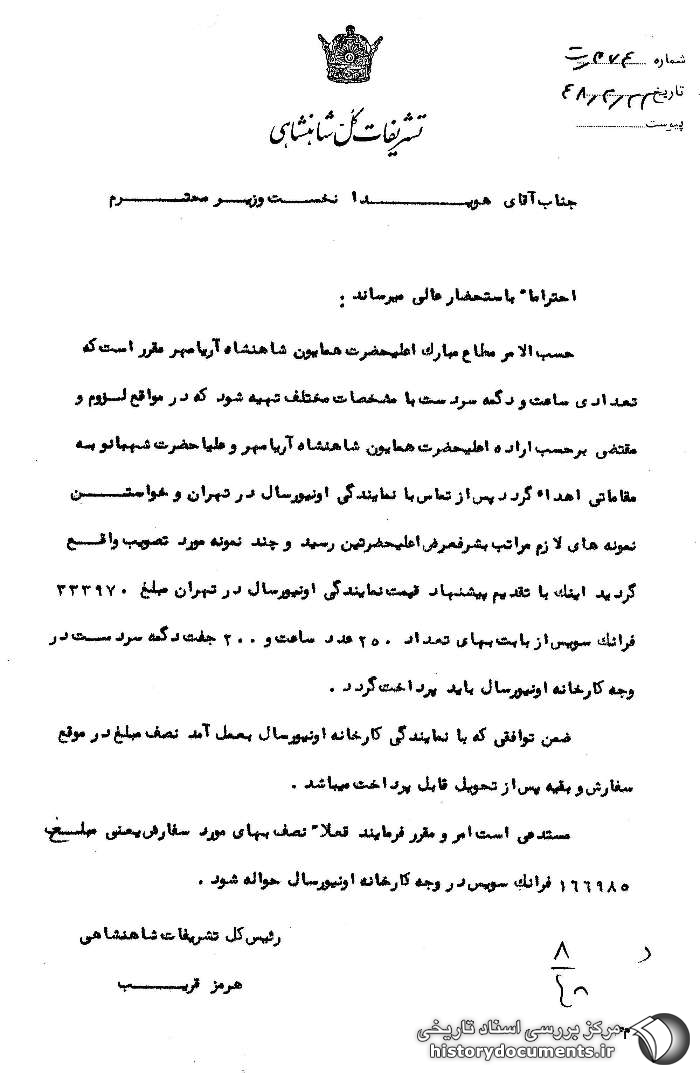 شماره
تاریخ ۴۸٫۳٫
پیوست
تشریفات کل شاهنشاهی
جناب آقای هویـــدا نخست وزیر محترم
احتراماً باستحضار عالی میرساند :
حسب الامر مطاع مبارك اعلیحضرت همایون شاهنشاه آریامهر مقرر است که
تعدادی ساعت و دگمه سردست با مشخصات مختلف تهیه شود که در مواقع لزوم و
مقتضی برحسب اراده اعلیحضرت همایون شاهنشاه آریامهر و علیاحضرت شهبانو به
مقاماتی اهداء گردد پس از تماس با نمایندگی اونیورسال در تهران و خواستن
نمونه های لازم مراتب بشرفعرض اعلیحضرتین رسید و چند نمونه مورد تصویب واقع
گردید اینك با تقدیم پیشنهاد قیمت نمایندگی اونیورسال در تهران مبلغ ۳۳۳۹۷۰
فرانك سویس از بابت بهای تعداد ۲۵۰ عدد ساعت و ۲۰۰ جفت دگمه سردست در
وجه کارخانه اونیورسال باید پرداخت گردد .
ضمن توافقی که با نمایندگی کارخانه اونیورسال بعمل آمد نصف مبلغ در موقع
سفارش و بقیه پس از تحویل قابل پرداخت میباشد .
مستدعی است امر و مقرر فرمایند فعلاً نصف بهای مورد سفارش یعنی مبلغ
۱۶۶۹۸۵ فرانك سویس در وجه کارخانه اونیورسال حواله شود .
رئیس کل تشریفات شاهنشاهی
هرمز قریب
۸
م
مرکز بررسی اسناد تاریخی
historydocuments.ir